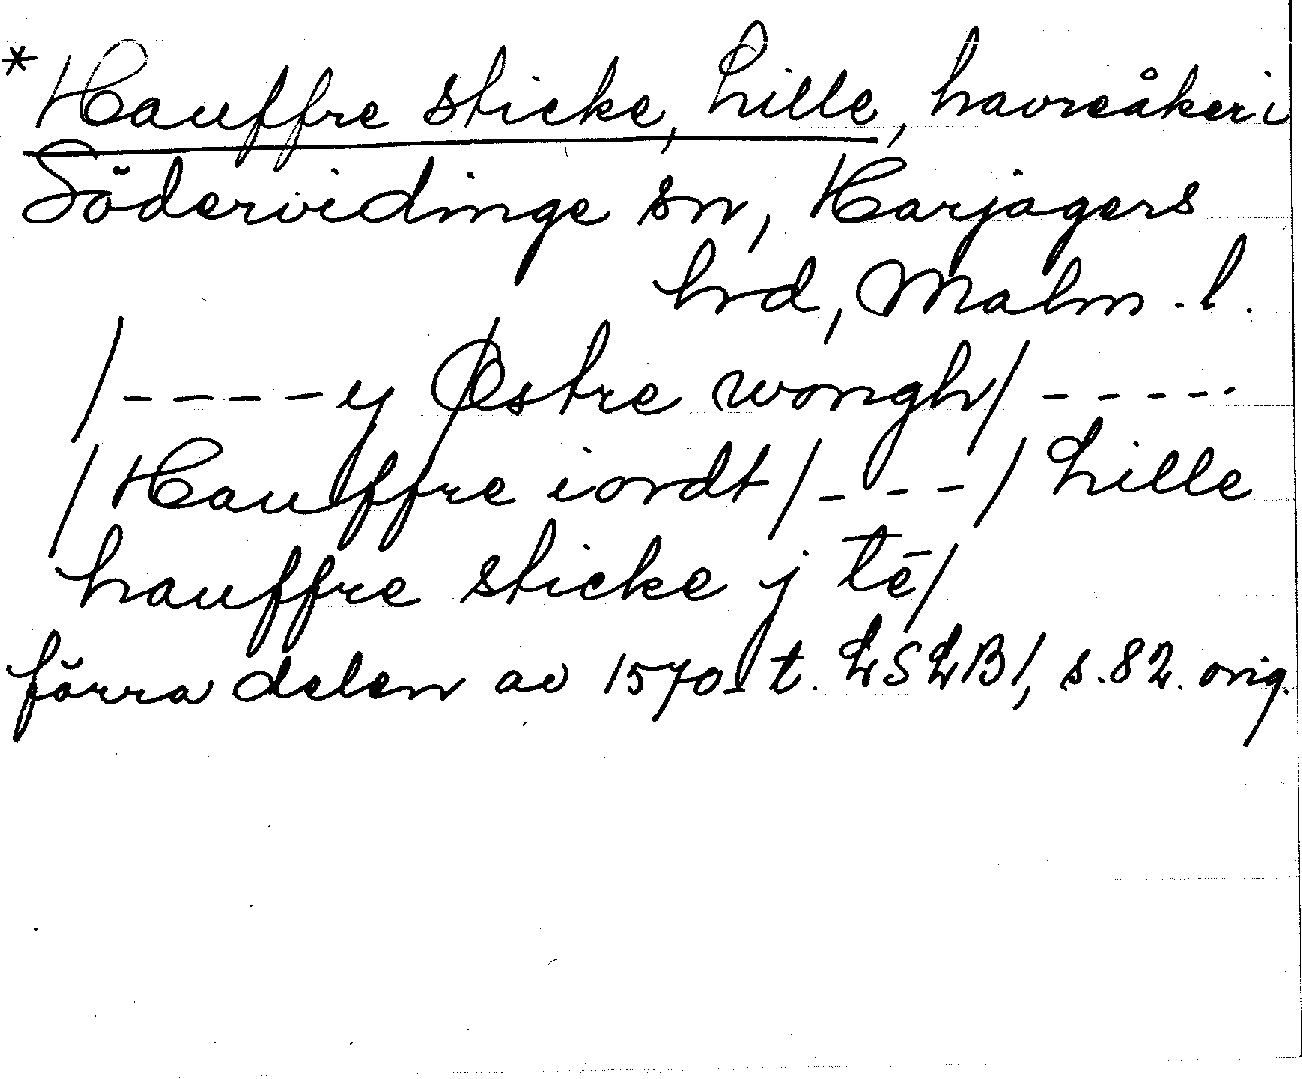 * Hauffre sticke, Lille, havreåker i
Södervidinge sn, Harjagers
hrd, Malm. l.
/----- y Østre wongh/ -----
/Hauffre iordt/---/ Lille
hauffre sticke j tē/
förra delen av 1570-t. LSLB1, s. 82. orig.